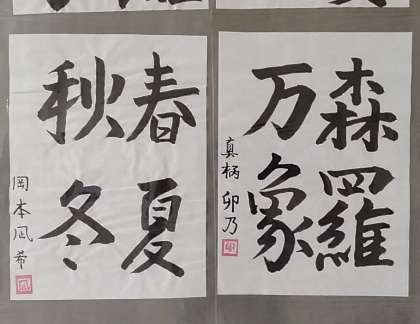 森羅
万象
真柄 卯乃
春夏
秋冬
岡本凪希